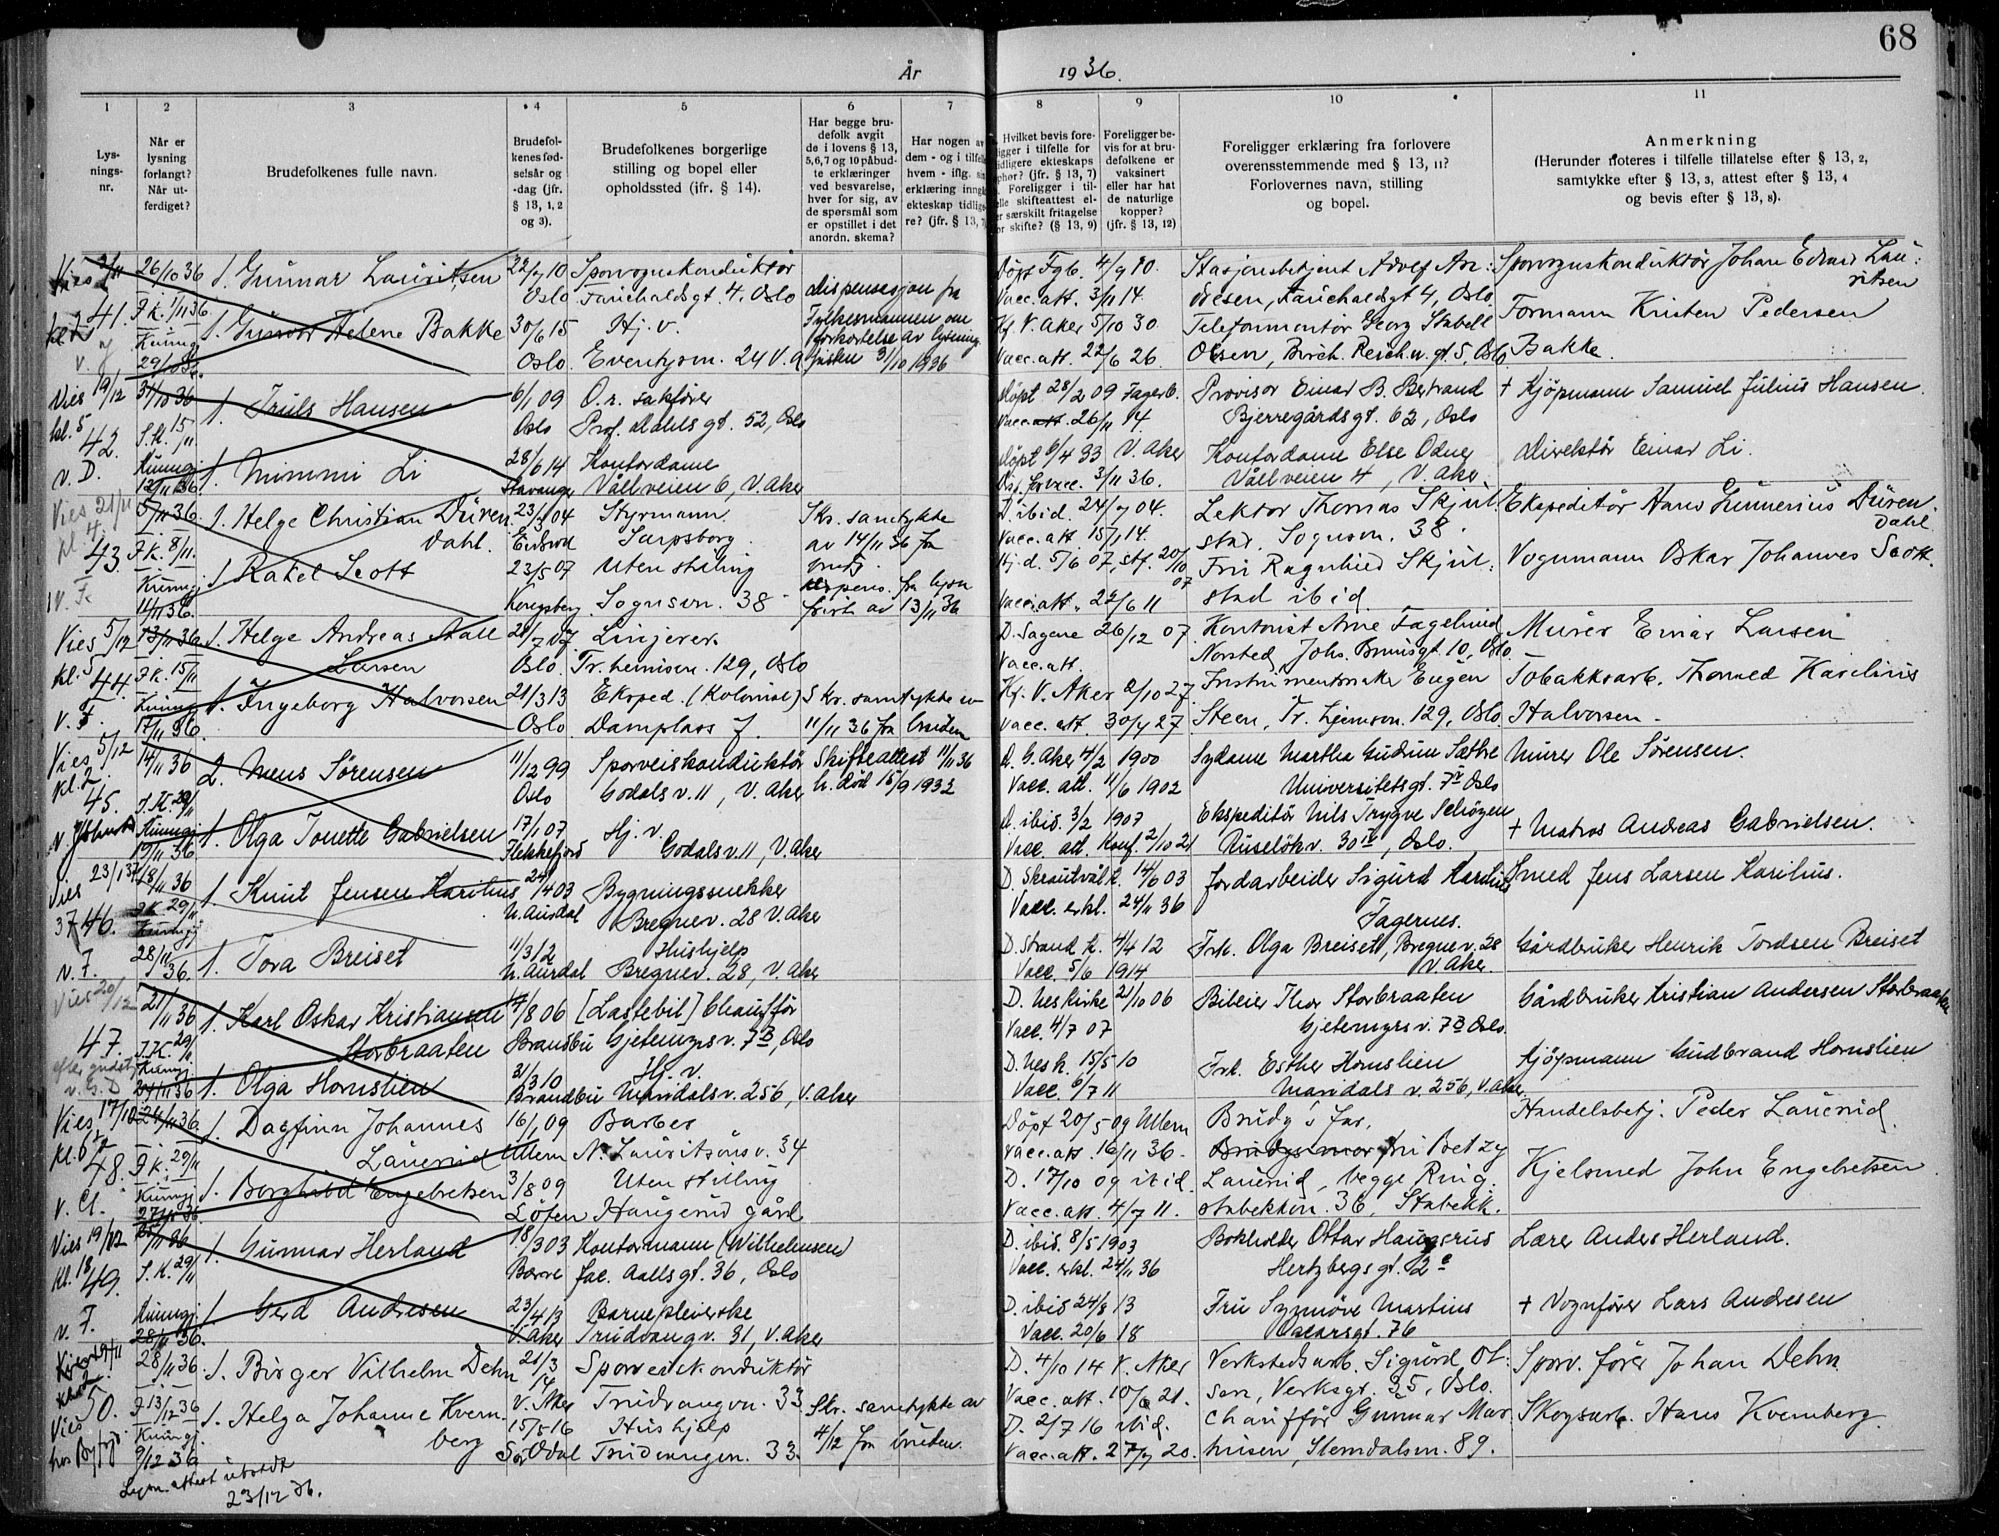 68
År
1936.
1
2
3
4
5
6
7
8
9
10
11
Lys-
nings-
nr.
Når er
lysning
forlangt?
Når ut-
ferdiget?
Brudefolkenes fulle navn.
Brudefol-
kenes fød-
selsår og
-dag (jfr.
§ 13, 1, 2
og 3).
Brudefolkenes borgerlige
stilling og bopel eller
opholdssted (jfr. § 14).
Har begge bru-
defolk avgit
de i lovens § 13,
5,6,7 og 10 påbud-
te erklæringer
ved besvarelse,
hver for sig, av
de spørsmål som
er opstillet i det
anordn. skema?
Har nogen av
dem - og i tilfelle
hvem - iflg. sin
erklæring inngå
ekteskap tidlige-
re? (jfr. § 13, 7)
Hvilket bevis fore-
ligger i tilfelle for
tidligere ekteskaps
ophør? (jfr. § 13, 7)
Foreligger i til-
felle skifteattest el-
er særskilt fritagelse
for skifte? (§ 13, 9)
Foreligger be-
vis for at bru-
defolkene er
vaksinert
eller har hat
de naturlige
kopper?
(jfr. § 13, 12)
Foreligger erklæring fra forlovere
overensstemmende med § 13, 11?
Forlovernes navn, stilling
og bopel.
Anmerkning
(Herunder noteres i tilfelle tillatelse efter § 13, 2,
samtykke efter § 13, 3, attest efter § 13, 4
og bevis efter § 13, 8).
41. 26/10 36 1. Gunnar Lauritsen 22/7 10 Sporvognskonduktör
Oslo Farichaldsgt. 4. Oslo dispensasjon fra
F.k. 1/11 36 1. Gunvor Helene Bakke 30/6 15 Hj. v. Fylkesmannen om
Kunngj. 29/10 36. Oslo. Eventyrvn. 24 V. A. forkortelse av lysnings-
fristen 31/10 1936
Döpt Fgb. 4/9 10. Stasjonsbetjent Adolf An- Sporvognskonduktör Johan Edvard Lau-
Vacc. att. 3/11 14. dresen, Farichaldsgt 4, Oslo. ritsen
Kf. V. Aker 5/10 30. Telefonmontör Georg Stabell Formann Kristen Pedersen
Vacc. att. 22/6 26. Olsen, Birch. Reich.w. gt. 5, Oslo Bakke.
Vies 19/12 kl. 5 42. v. D. 31/10 36 1. Truls Hansen 6/1 09 O.r. sakförer
S.K. 15/11 Oslo Prof. Dahls gt. 52, Oslo
Kunngj. 12/11 36. 1. Mimmi Li 28/6 14 Kontordame
Stavanger Vållveien 6, V. Aker
döpt 28/2 09 Fagerb. Provisor Einar B. Bertrand + Kjöpmann Samuel Julius Hansen.
Vacc. att. 26/11 14. Bjerregårdsgt. 62, Oslo
döpt 6/4 33 V. Aker Kontordame Else Odner Direktör Einar Li.
3/11 36. Vållveien 4, V. Aker.
Vies 21/11 kl. 4. 43. v. F. 5/11 36. 1. Helge Christian Düren- 23/3 04 Styrmann Skr. samtykke
F.k. 8/11. dahl. Sarpsborg. av 14/11 36 fra
Kunngj. 14/11 36. 1. Rakel Scott 23/5 07 Uten stilling brud.
Kongsberg. Sognsvn. 38 dispens. fra lysn.
frist av 13/11 36
D. ibid. 24/7 04. Lektor Thomas Skjul- Ekspeditör Hans Gunnerius Düren-
Vacc. att 15/1 14. stad. Sognsvn. 38 dahl
Hj. d. 5/6 07, stf. 20/10 07 Fru Ragnhild Skjul- Vognmann Oskar Johannes Scott.
Vacc. att. 22/6 11 stad ibid.
Vies 5/12 kl. 5 44. v. F. 13/11 36. 1. Helge Andreas Aall 21/7 07 Linjerer.
F.k. 15/11 Larsen Oslo. Tr. heimsvn. 129, Oslo
Kunngj. 17/11 36. 1. Ingeborg Halvorsen 21/3 13 Eksped. (Kolonial) Skr. samtykke av
Oslo Damplass 7. 11/11 36 fra bruden
D. Sagene 26/12 07 Kontorist Arne Fagelund Murer Einar Larsen
Vacc. att. Norsted, Johs. Brunsgt 10, Oslo.
Kf. V. Aker 2/10 27. Instrumentmaker Eugen Tobakksarb. Thomed Karelius
Vacc. att. 30/4 27 Steen, Tr. hjemsvn. 129, Oslo Halvorsen.
Vies 5/12 kl. 2 45. 14/11 36 2. Mens Sørensen 11/12 99 Sporveiskonduktör Skifteattest 11/11 36
S.K. 29/11 Oslo Godals v. 11, V. Aker h. död 15/9 1932
Kunngj. 19/11 36 1. Olga Tonette Gabrielsen 17/1 07 Hj. v.
Flekkefjord Godals v. 11, V. Aker
D. G. Aker 4/2 1900 Sydame Martha Gudrun Sæthre Murer Ole Sørensen.
Vacc. att. 11/6 1902 Universitetsgt. 7 IV Oslo
D. ibid. 3/2 1907 Ekspeditör Nils Trygve Schöyen
Vacc. att. Konf. 2/10 21 Ruselökv. 30 IV, Oslo. + Matros Andreas Gabrielsen.
Vies 23/1 37 46. v. F. 18/11 36 1. Knut Jensen Karilius 24/4 03 Bygningssnekker
S.K. 29/11 N. Aurdal Bregnev. 28 V. Aker
Kunngj. 28/11 36. 1. Tora Breiset 11/3 12 Hushjelp
N. Aurdal Bregnev. 28, V. Aker
D. Skrautvål k. 14/6 03 Jordarbeider Sigurd Karilius Smed Jens Larsen Karilius.
Vacc. erkl. 24/11 36 Fagernes.
D. Strand k. 4/4 12 Frk. Olga Breiset, Bregnev. 28 Gårdbruker Henrik Tordsen Breiset
Vacc. 5/6 1914 V. Aker.
Vies 20/12 47. 21/11 36 1. Karl Oskar Kristiansen 14/8 06 [Lastebil] Chaufför
S.K. 29/11 Storbraaten Brandbu Gjetemyrsv. 7 B, Oslo
Kunngj. 27/11 36 1. Olga Hornslien 31/3 10 Hj. v.
Brandbu Maridalsv. 256, V. Aker
D. Nes Kirke 21/10 06 Bileier Thor Storbraaten Gårdbruker Kristian Andersen Storbraaten
Vacc. 4/7 07 Gjetemyrsv. 7 B Oslo.
D. Nes k. 15/5 10 Frk. Esther Hornslien Kjöpmann Gudbrand Hornslien
Vacc. 6/7 11 Maridals v. 256, V. Aker.
Vies 17/12 kl. 6 48. v. Cl. 24/11 36. 1. Dagfinn Johannes 16/1 09 Barber
F.k. 29/11 Lauerud Ullern N. Lauritsøns v. 34
Kunngj. 27/11 36. 1. Borghild Engebretsen 3/8 09 Uten stilling
Löten Haugerud gård
Döpt 20/5 09 Ullern Brudg's far, Handelsbetj. Peder Lauerud.
Vacc. att. 16/11 36. Brudgs mor fru Betzy
D. 17/10 09 ibid. Lauerud, begge Ring- Kjelsmed John Engebretsen.
Vacc. att. 4/7 11. stabekkvn. 36, Stabekk.
Vies 19/12 kl. 18 49. v. F. 25/11 36 1. Gunnar Herland 18/3 03 Kontormann (Wilhelmsen)
S.K. 29/11 Jac. Aallsgt. 36, Oslo
Kunngj. 28/11 36. 1. Gerd Andresen 23/4 13 Barnepleierske
V. Aker Trudvangv. 31, V. Aker
D. ibid. 8/5 1903 Bokholder Ottar Haugsrud Lærer Anders Herland.
Vacc. erkl. 24/11 36 Hertzbergsgt. 2 c
D. ibid 24/8 13 Fru Synnöve Martins + Vognförer Lars Andresen
Vacc. 20/6 18 Oscarsgt. 76
50. 28/11 36. 1. Birger Vilhelm Dehn 21/3 14 Sporveiskonduktör
F 13/12 36 V. Aker Trudvangvn. 33
Kunngj. 9/12 36 1. Helga Johanne Kvern- 15/5 16 Hushjelp Skr. samtykke av
berg Sør Odal Trudvangvn. 33. 4/12 fra bruden.
Vies hos Byfgd.
D. 4/10 14 V. Aker Verkstedsarb. Sigurd Ol- Sporv. förer Johan Dehn
Vacc. att. 10/6 21. sen, Verksgt. 35, Oslo.
D. 2/7 16 ibid. chauffør Gunnar Mar- Skogsarb. Hans Kvernberg.
Vacc. att. 27/7 20. Slemdalsvn. 89.
Lysn. attest utstedt
23/12 36.